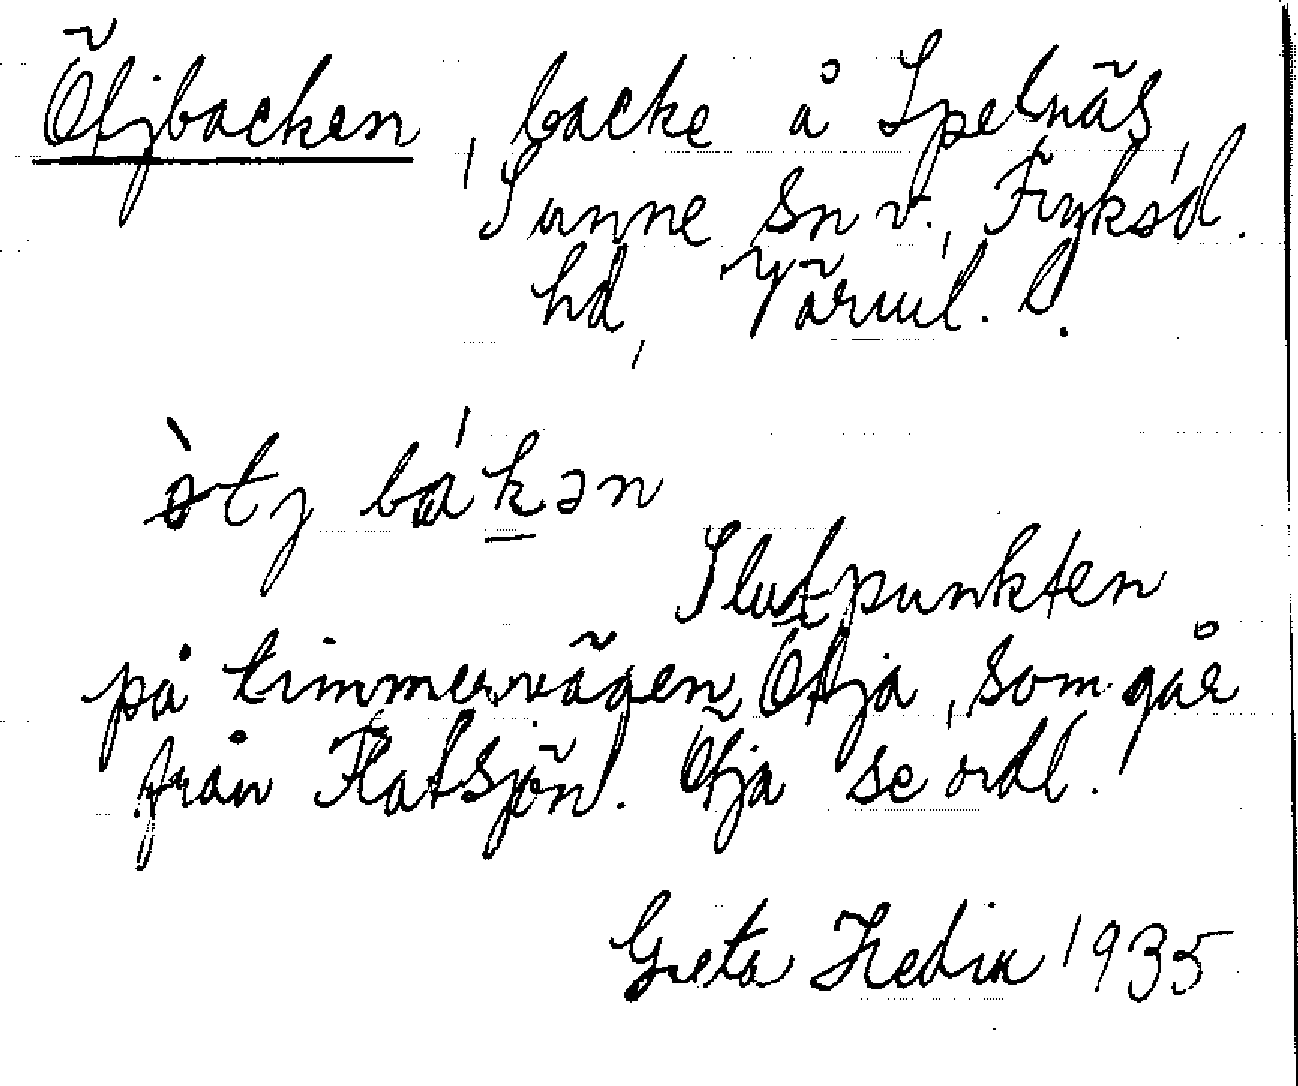 Ötjbacken, backe å Spelnäs,
Sunne sn v., Fryksd.
hd, Värml. l.
òtj bákən
Slutpunkten
på timmervägen Ötja, som går
från Flatsjön. Ötja se ordl.
Greta Hedin 1935